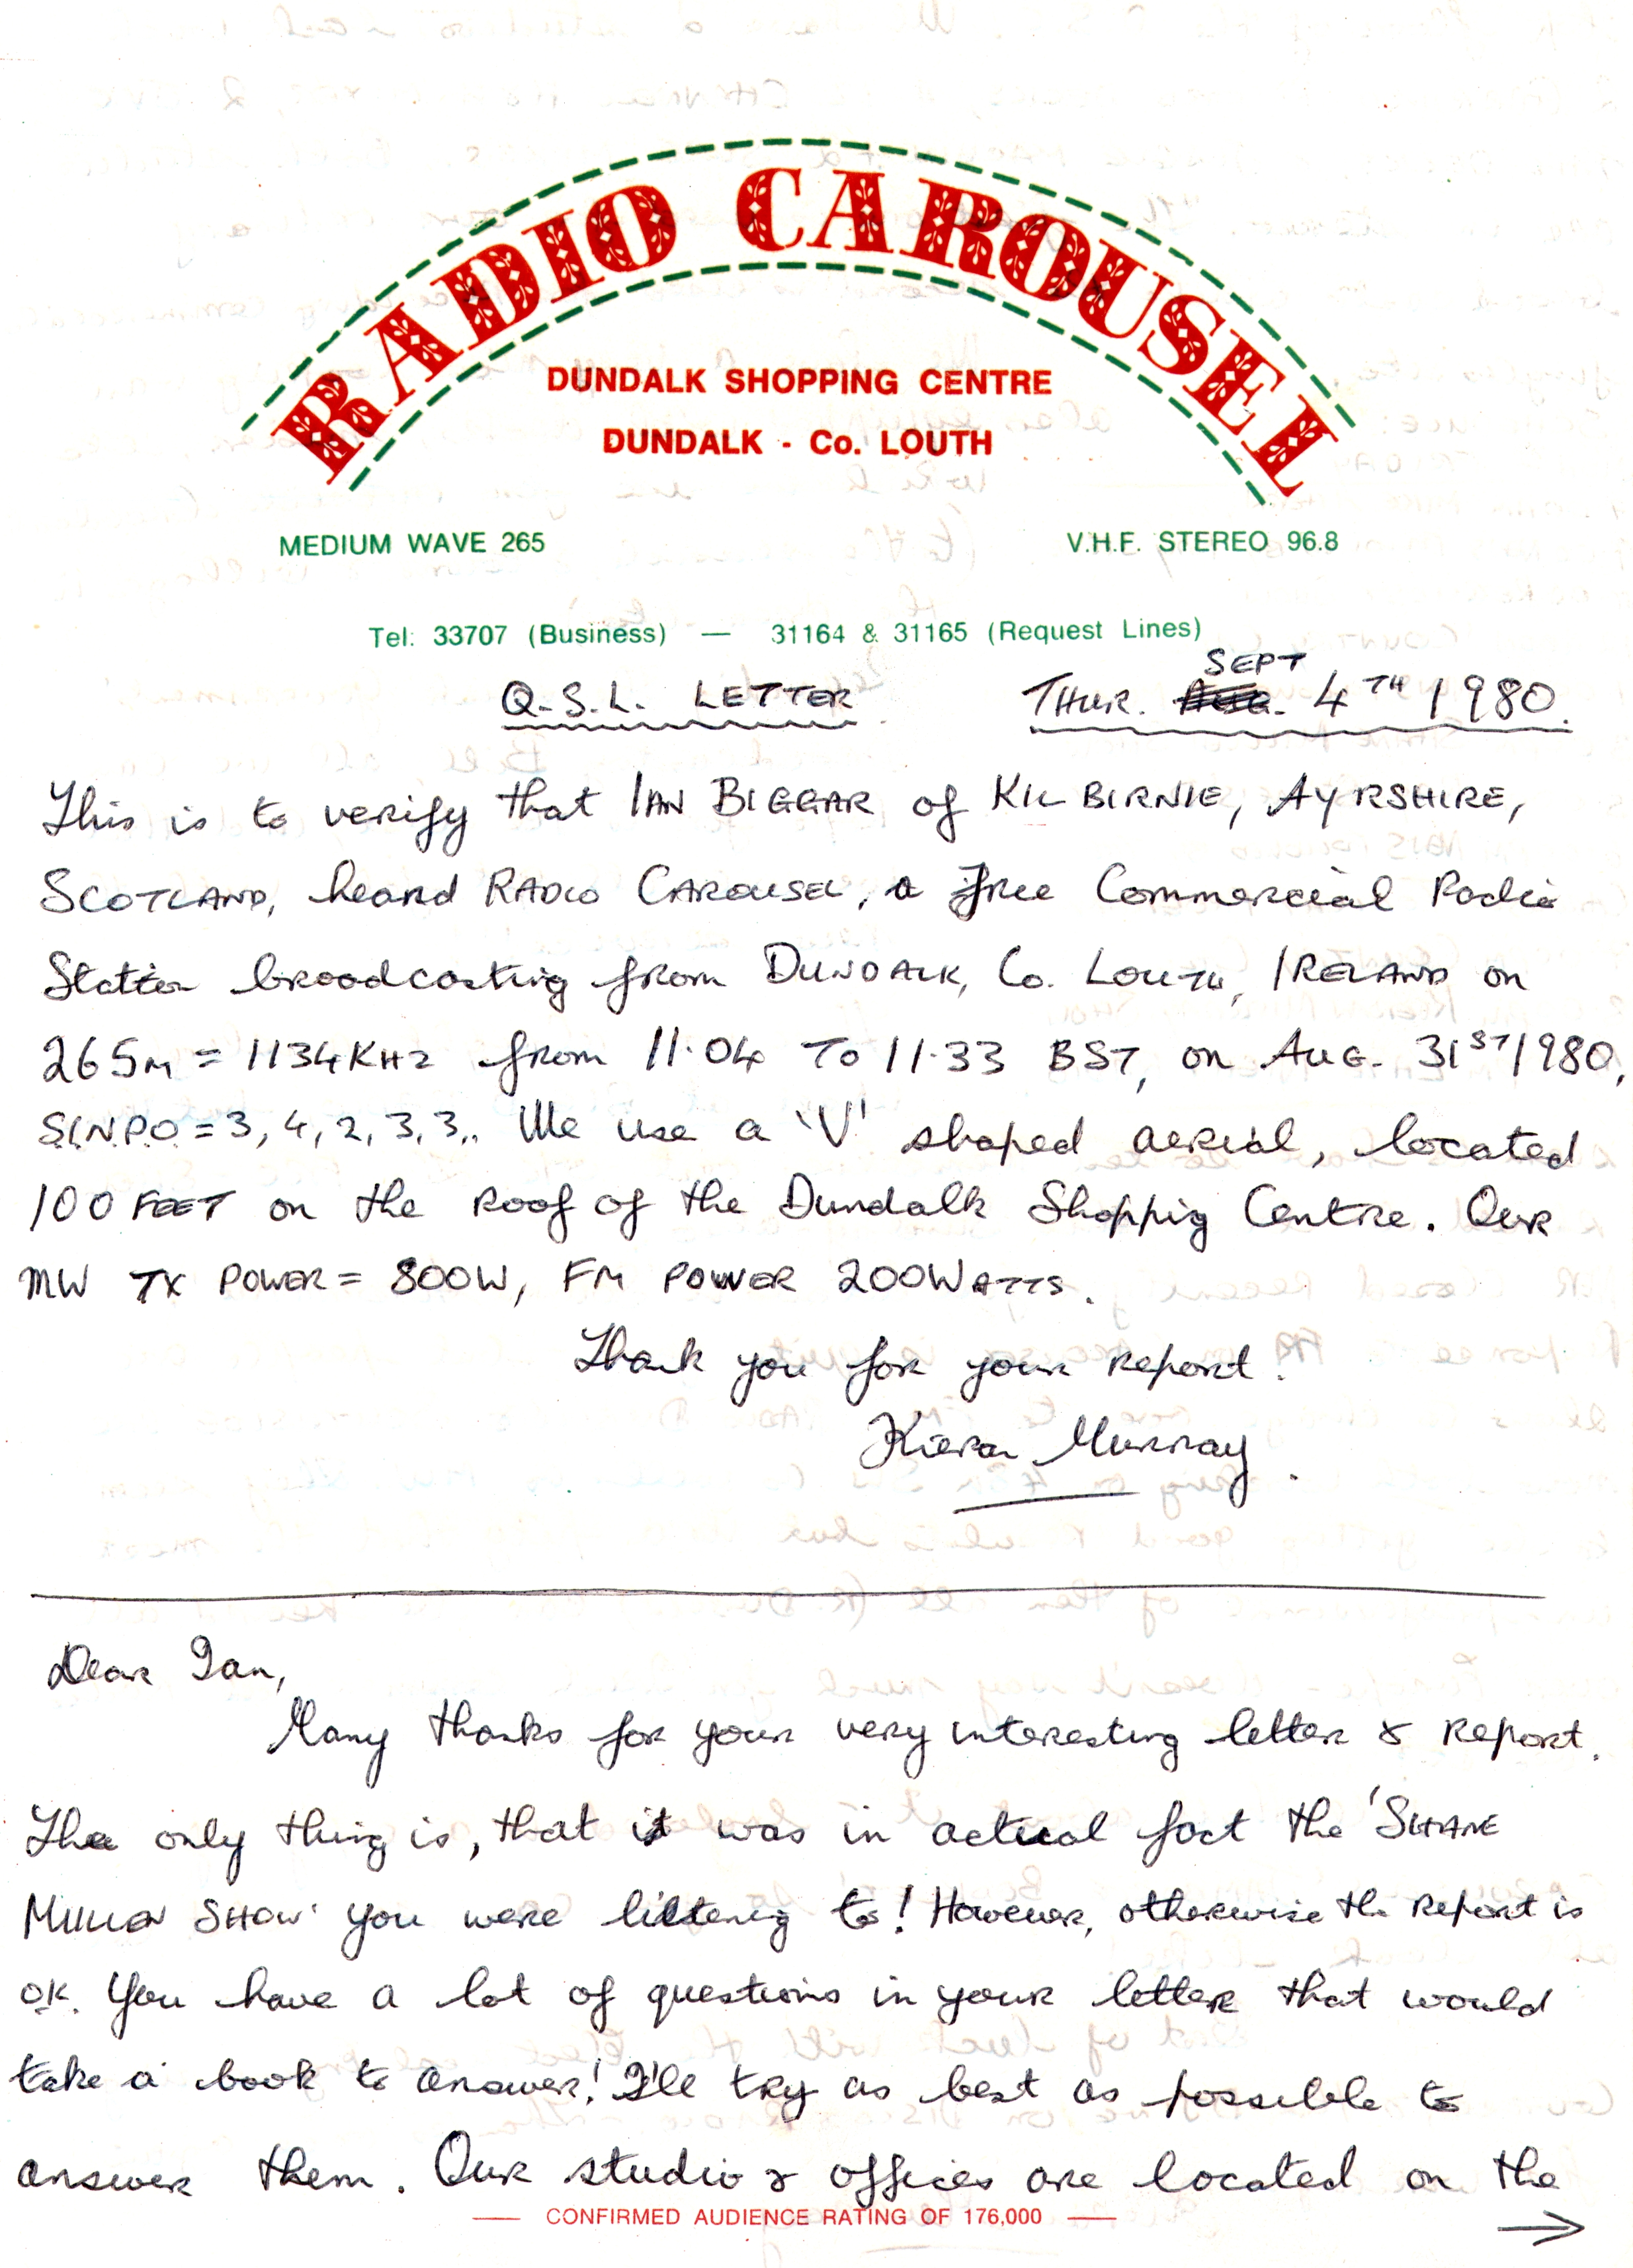 RADIO CAROUSEL
DUNDALK SHOPPING CENTRE
DUNDALK - Co. LOUTH
MEDIUM WAVE 265 V.H.F. STEREO 96.8
Tel: 33707 (Business) — 31164 & 31165 (Request Lines)
Q.S.L. LETTER THUR. SEPT 4TH 1980.
This is to verify that IAN BIGGAR of KILBIRNIE, AYRSHIRE,
SCOTLAND, heard RADIO CAROUSEL, a free Commercial Radio
Station broadcasting from DUNDALK, Co. LOUTH, IRELAND on
265M = 1134KHz from 11.04 TO 11.33 BST, on AUG. 31ST 1980,
S.I.N.P.O = 3, 4, 2, 3, 3,. We use a 'V' shaped aerial, located
100 FEET on the roof of the Dundalk Shopping Centre. Our
MW TX POWER = 800W, FM POWER 200WATTS.
Thank you for your report.
Kieran Murray.
Dear Ian,
Many thanks for your very interesting letter & report.
The only thing is, that it was in actual fact the 'SHANE
MULLEN SHOW' you were listening to! However, otherwise the report is
OK. You have a lot of questions in your letter that would
take a book to answer! I'll try as best as possible to
answer them. Our studio & offices are located on the
— CONFIRMED AUDIENCE RATING OF 176,000 —
→